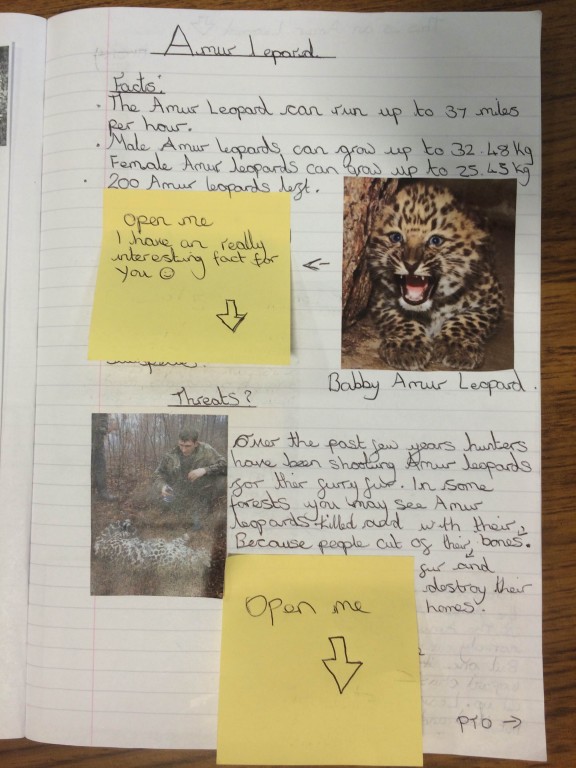 Amur Lepard
Facts:
• The Amur Leopard can run up to 37 miles
per hour.
• Male Amur leopards can grow up to 32.48kg
Female Amur leopards can grow up to 25.45kg
• 200 Amur leopards left.
Open me
I have an really
interesting fact for
you ☺
Babby Amur Leopard.
Threats?
Over the past few years hunters
have been shooting Amur leopards
for thier furry fur. In some
forests you may see Amur
leopards killed and with their
Because people cut of their bones.
fur and
destroy their
homes.
Open me
PTO →